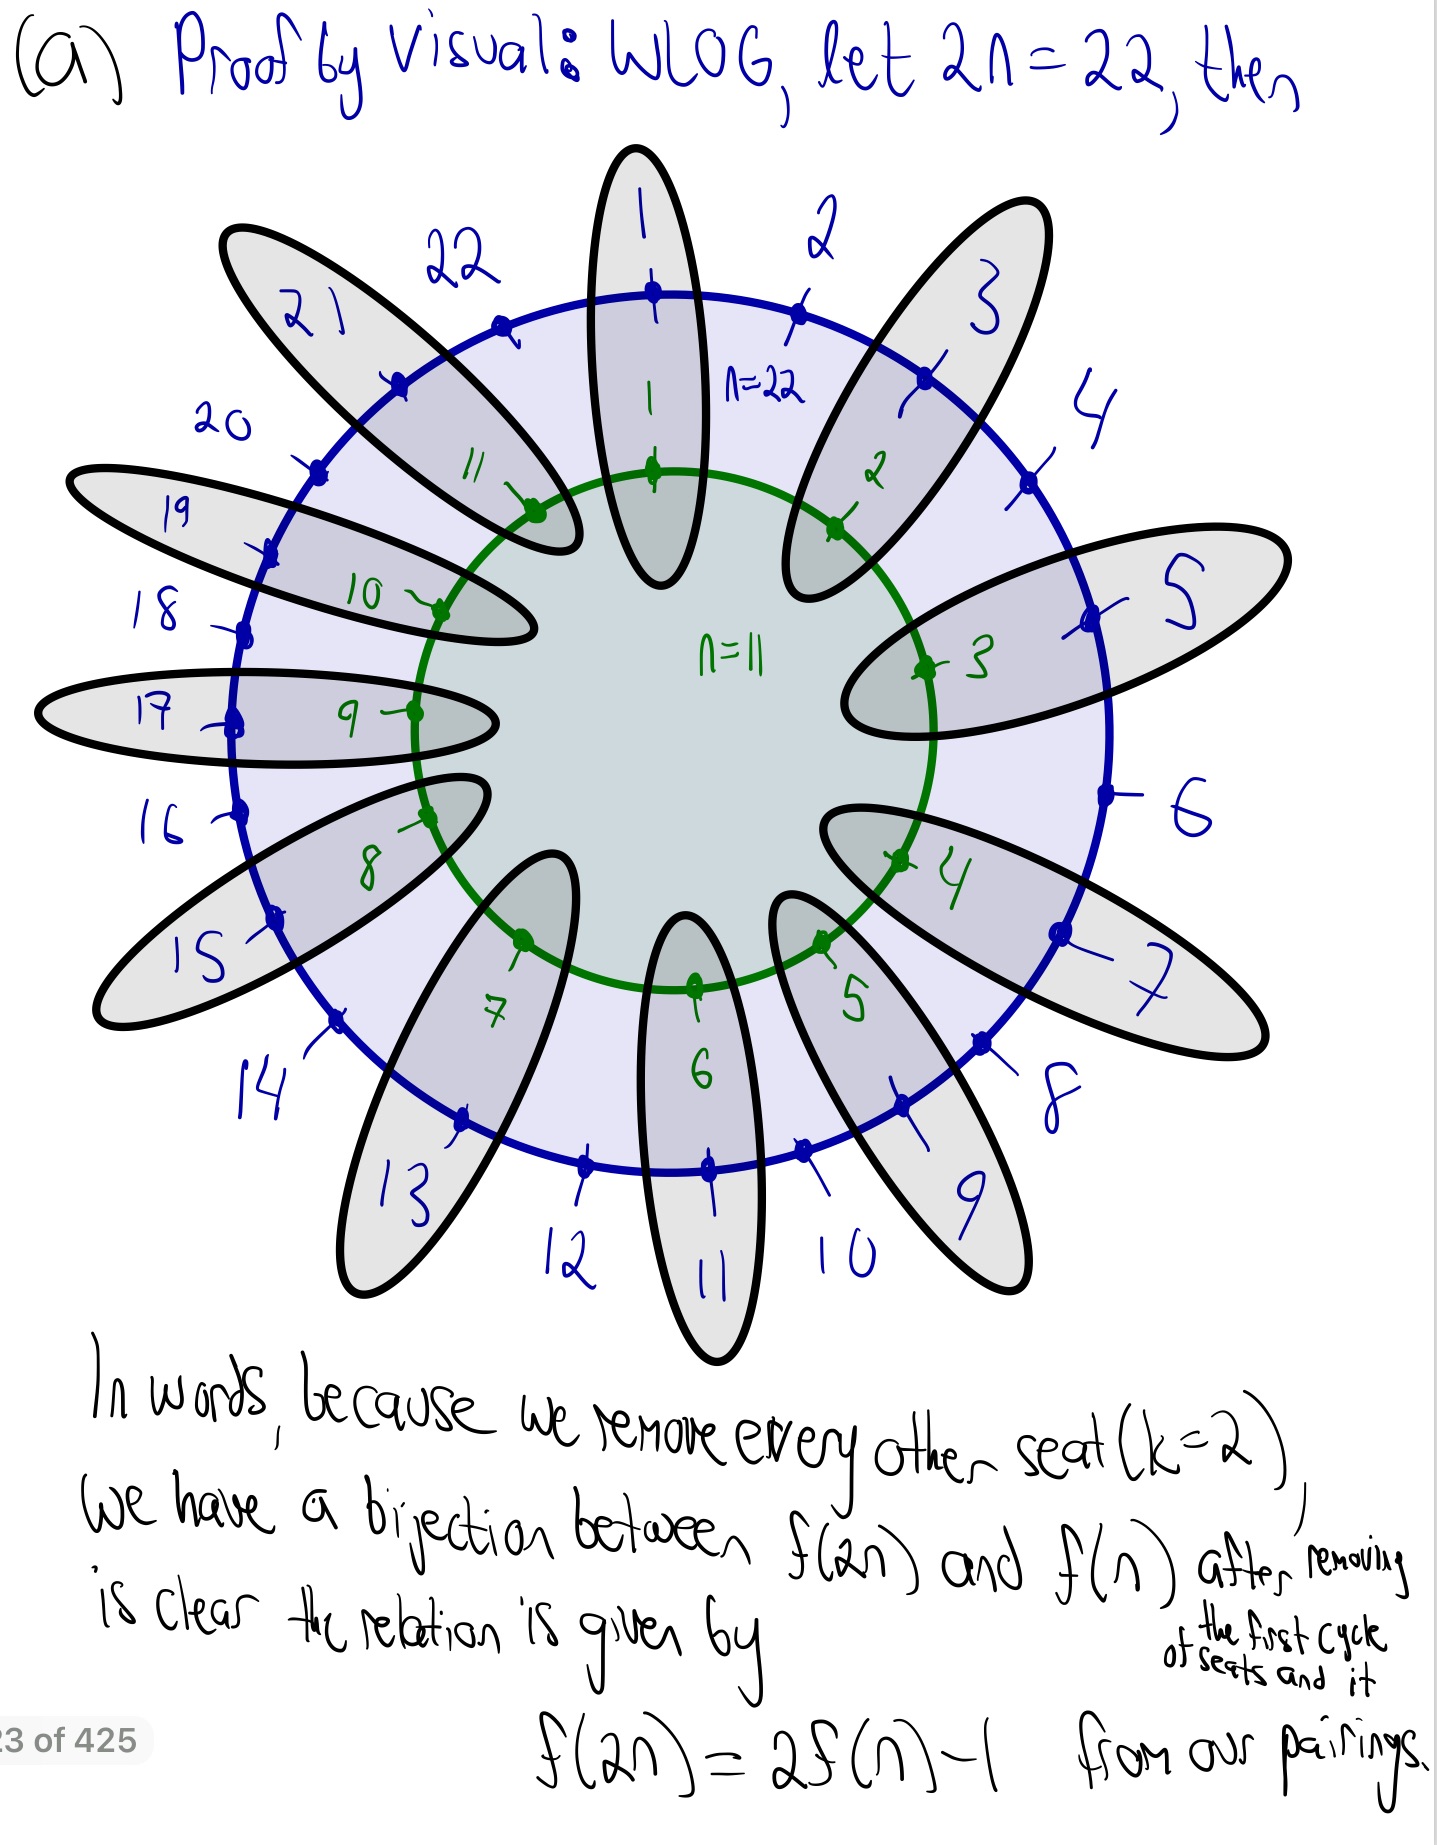 (a) Proof by Visual: WLOG, let 2n = 22, then
1
2
3
4
5
6
7
8
9
10
11
12
13
14
15
16
17
18
19
20
21
22
n=22
1
2
3
4
5
6
7
8
9
10
11
n=11
In words, because we remove every other seat (k=2),
we have a bijection between f(2n) and f(n) after removing
the first cycle
of seats and it
is clear the relation is given by
f(2n) = 2f(n)-1 from our pairings.
23 of 425